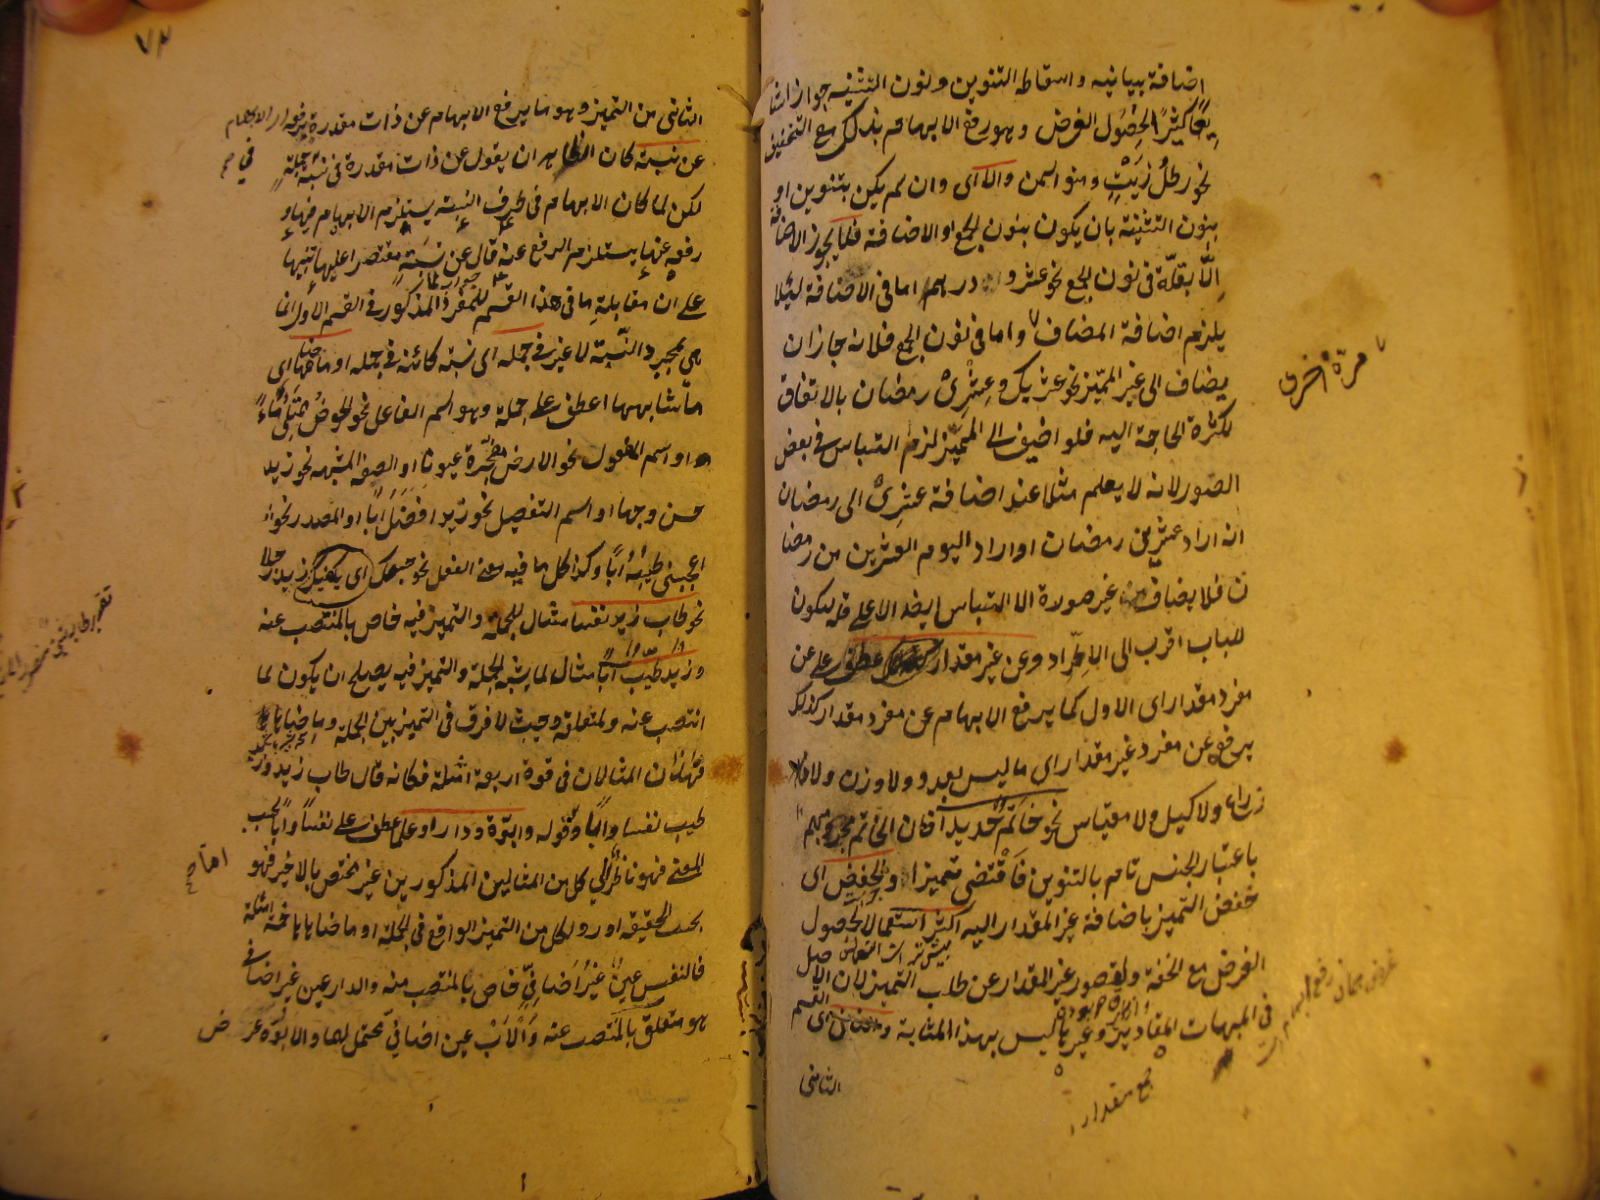 اضافة بيانية واسقاط التنوين ونون التثنية جوازا شا
يعا كثيرا لحصول الغرض وهو رفع الابهام بذلك مع التخفيف
نحو رطل زيت ومنوا سمن والا اى وان لم يكن بتنوين او
بنون التثنية بان يكون بنون الجمع او الاضافة فلا يجوز الاضافة
الا بقلة فى نون الجمع نحو عشرو درهم اما فى الاضافة لئلا
يلزم اضافة المضاف واما فى نون الجمع فلانه جاز ان
مرة اخرى
يضاف الى غير المميز نحو عشريك وعشرى رمضان بالاتفاق
لكثرة الحاجة اليه فلو اضيف الى المميز لزم التباس فى بعض
الصور لانه لا يعلم مثلا عند اضافة عشرى الى رمضان
انه اراد عشرين رمضان او اراد اليوم العشرين من رمضا
ن فلا يضاف غير صورة الالتباس ايضا الا على قلة ليكون
الباب اقرب الى الاطراد وعن غير مقدار عطف على عن
مفرد مقدار اى الاول كما يرفع الابهام عن مفرد مقدار كذلك
يرفع عن مفرد غير مقدار اى ما ليس بعدد ولا وزن ولا
ذراع ولا كيل ولا مقياس نحو خاتم حديدا فان الخاتم مبهم
باعتبار الجنس تام بالتنوين فاقتضى تميزا والخفض اى
خفض التميز باضافة غير المقدار اليه اكثر استعمالا لحصول
الغرض مع الخفة ولقصور غير المقدار عن طلب التميز لان الاصل
فى المبهمات المقادير وغيرها ليس بهذا المثابة والثانى اى القسم
جمع مقدار
الثانى
٧٣
الثانى من التميز وهو ما يرفع الابهام عن ذات مقدرة يرفع الابهام
عن نسبة كان الظاهر ان يقول عن ذات مقدرة فى نسبة جملة
لكن لما كان الابهام فى طرف النسبة يستلزم الابهام فيها و
رفعه عنها يستلزم الرفع عنه قال عن نسبة مقتصرا عليها تنبيها
على ان مقابلة ما فى هذا القسم للمفرد المذكور فى القسم الاول انما
هى بمجرد النسبة لا غير فى جملة اى نسبة كائنة فى جملة او ما ضاهاها اى
ما شابهها عطف على جملة وهو اسم الفاعل نحو الحوض ممتلئ ماء
او اسم المفعول نحو الارض مفجرة عيونا او الصفة المشبهة نحو زيد
حسن وجها او اسم التفضيل نحو زيد افضل ابا او المصدر نحو
اعجبنى طيبه ابا وكذا كل ما فيه معنى الفعل نحو حسبك اى يكفيك زيد رجلا
نحو طاب زيد نفسا مثال للجملة والتميز فيه خاص بالمنتصب عنه
وزيد طيب ابا مثال لما يشبه الجملة والتميز فيه يصلح ان يكون لما
انتصب عنه ولمتعلقه وحيث لا فرق فى التميز بين الجملة وما ضاهاها
فهذان المثالان فى قوة اربعة امثلة فكانه قال طاب زيد وزيد
طيب نفسا وابا وقوله وابوة ودارا وعلما عطف على نفسا وابا بحسب
المعنى فهو ناظر الى كل من المثالين المذكورين غير مختص بالاخير فهو
بحسب الحقيقة اورد لكل من التميز الواقع فى الجملة او ما ضاهاها خمسة امثلة
فالنفس عين غير اضافى خاص بالمنتصب عنه والدار عين غير اضافى
هو متعلق بالمنتصب عنه والاب عين اضافى محتمل لهما والابوة عرض